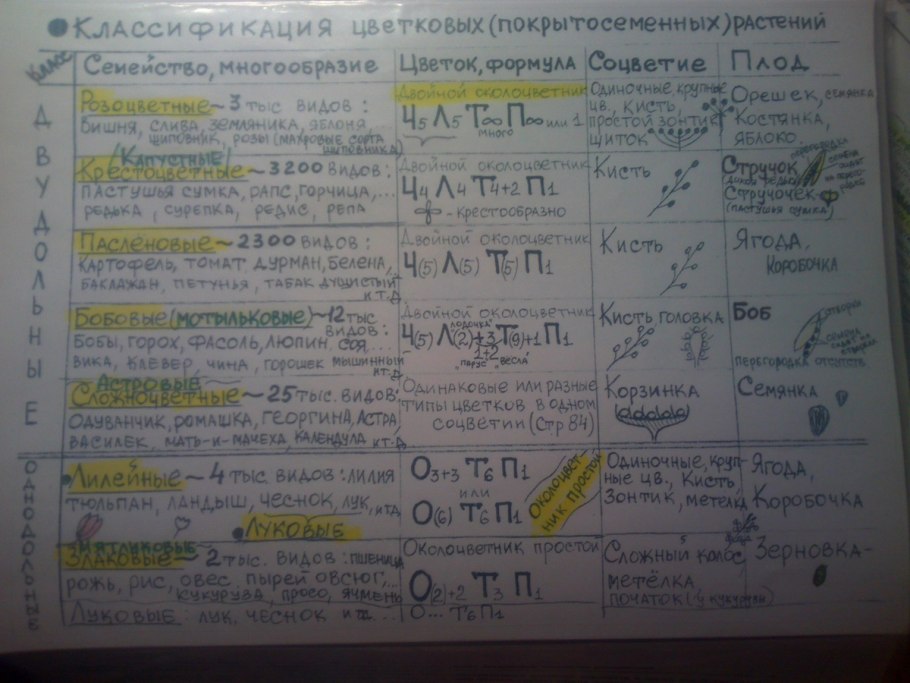 • Классификация цветковых (покрытосеменных) растений
Класс
Семейство, многообразие
Цветок, формула
Соцветие
Плод
ДВУДОЛЬНЫЕ
Розоцветные ~ 3 тыс. видов:
вишня, слива, земляника, яблоня
шиповник, розы (махровые сорта
шиповника)
Двойной околоцветник
Ч5 Л5 Т∞ П∞ или 1
много
Одиночные крупные
цв., кисть,
простой зонтик
щиток
Орешек, семянка
Костянка,
яблоко
(Капустные)
Крестоцветные ~ 3200 видов:
пастушья сумка, рапс, горчица,...
редька, сурепка, редис, репа
Двойной околоцветник
Ч4 Л4 Т4+2 П1
- крестообразно
Кисть
Стручок
перегородка
Стручочек
(пастушья сумка)
Паслёновые ~ 2300 видов:
картофель, томат дурман, белена,
баклажан, петунья, табак душистый
и т.д.
Двойной околоцветник
Ч(5) Л(5) Т(5) П1
Кисть
Ягода,
Коробочка
Бобовые (мотыльковые) ~ 12 тыс
видов:
Бобы, горох, фасоль, люпин. соя...
вика, клевер, чина, горошек мышинный
ит.д
Двойной околоцветник
лодочка
Ч(5) Л(2)+3 Т(9)+1 П1
1+2
парус весла
Кисть головка
Боб
створки
перегородка отсутств
Астровые
Сложноцветные ~ 25 тыс. видов:
Одуванчик, ромашка, георгина, астра
василек, мать-и-мачеха, календула и т.д.
Одинаковые или разные
типы цветков в одном
соцветии (Стр 84)
Корзинка
Семянка
ОДНОДОЛЬНЫЕ
• Лилейные ~ 4 тыс. видов: лилия
тюльпан, ландыш, чеснок, лук, итд
• Луковые
О3+3 Т6 П1
или
О(6) Т6 П1
Околоцвет-
ник простой
Одиночные, круп-
ные цв., Кисть
Зонтик, метелка
Ягода,
Коробочка
Мятликовые
Злаковые ~ 2 тыс. видов: пшеница
рожь, рис, овес, пырей овсюг,...
кукуруза, просо, ячмень
Околоцветник простой
О(2)+2 Т3 П1
Сложный колос
метёлка,
початок (у кукурузы)
Зерновка-
Луковые: лук, чеснок и т...
О... Т6 П1